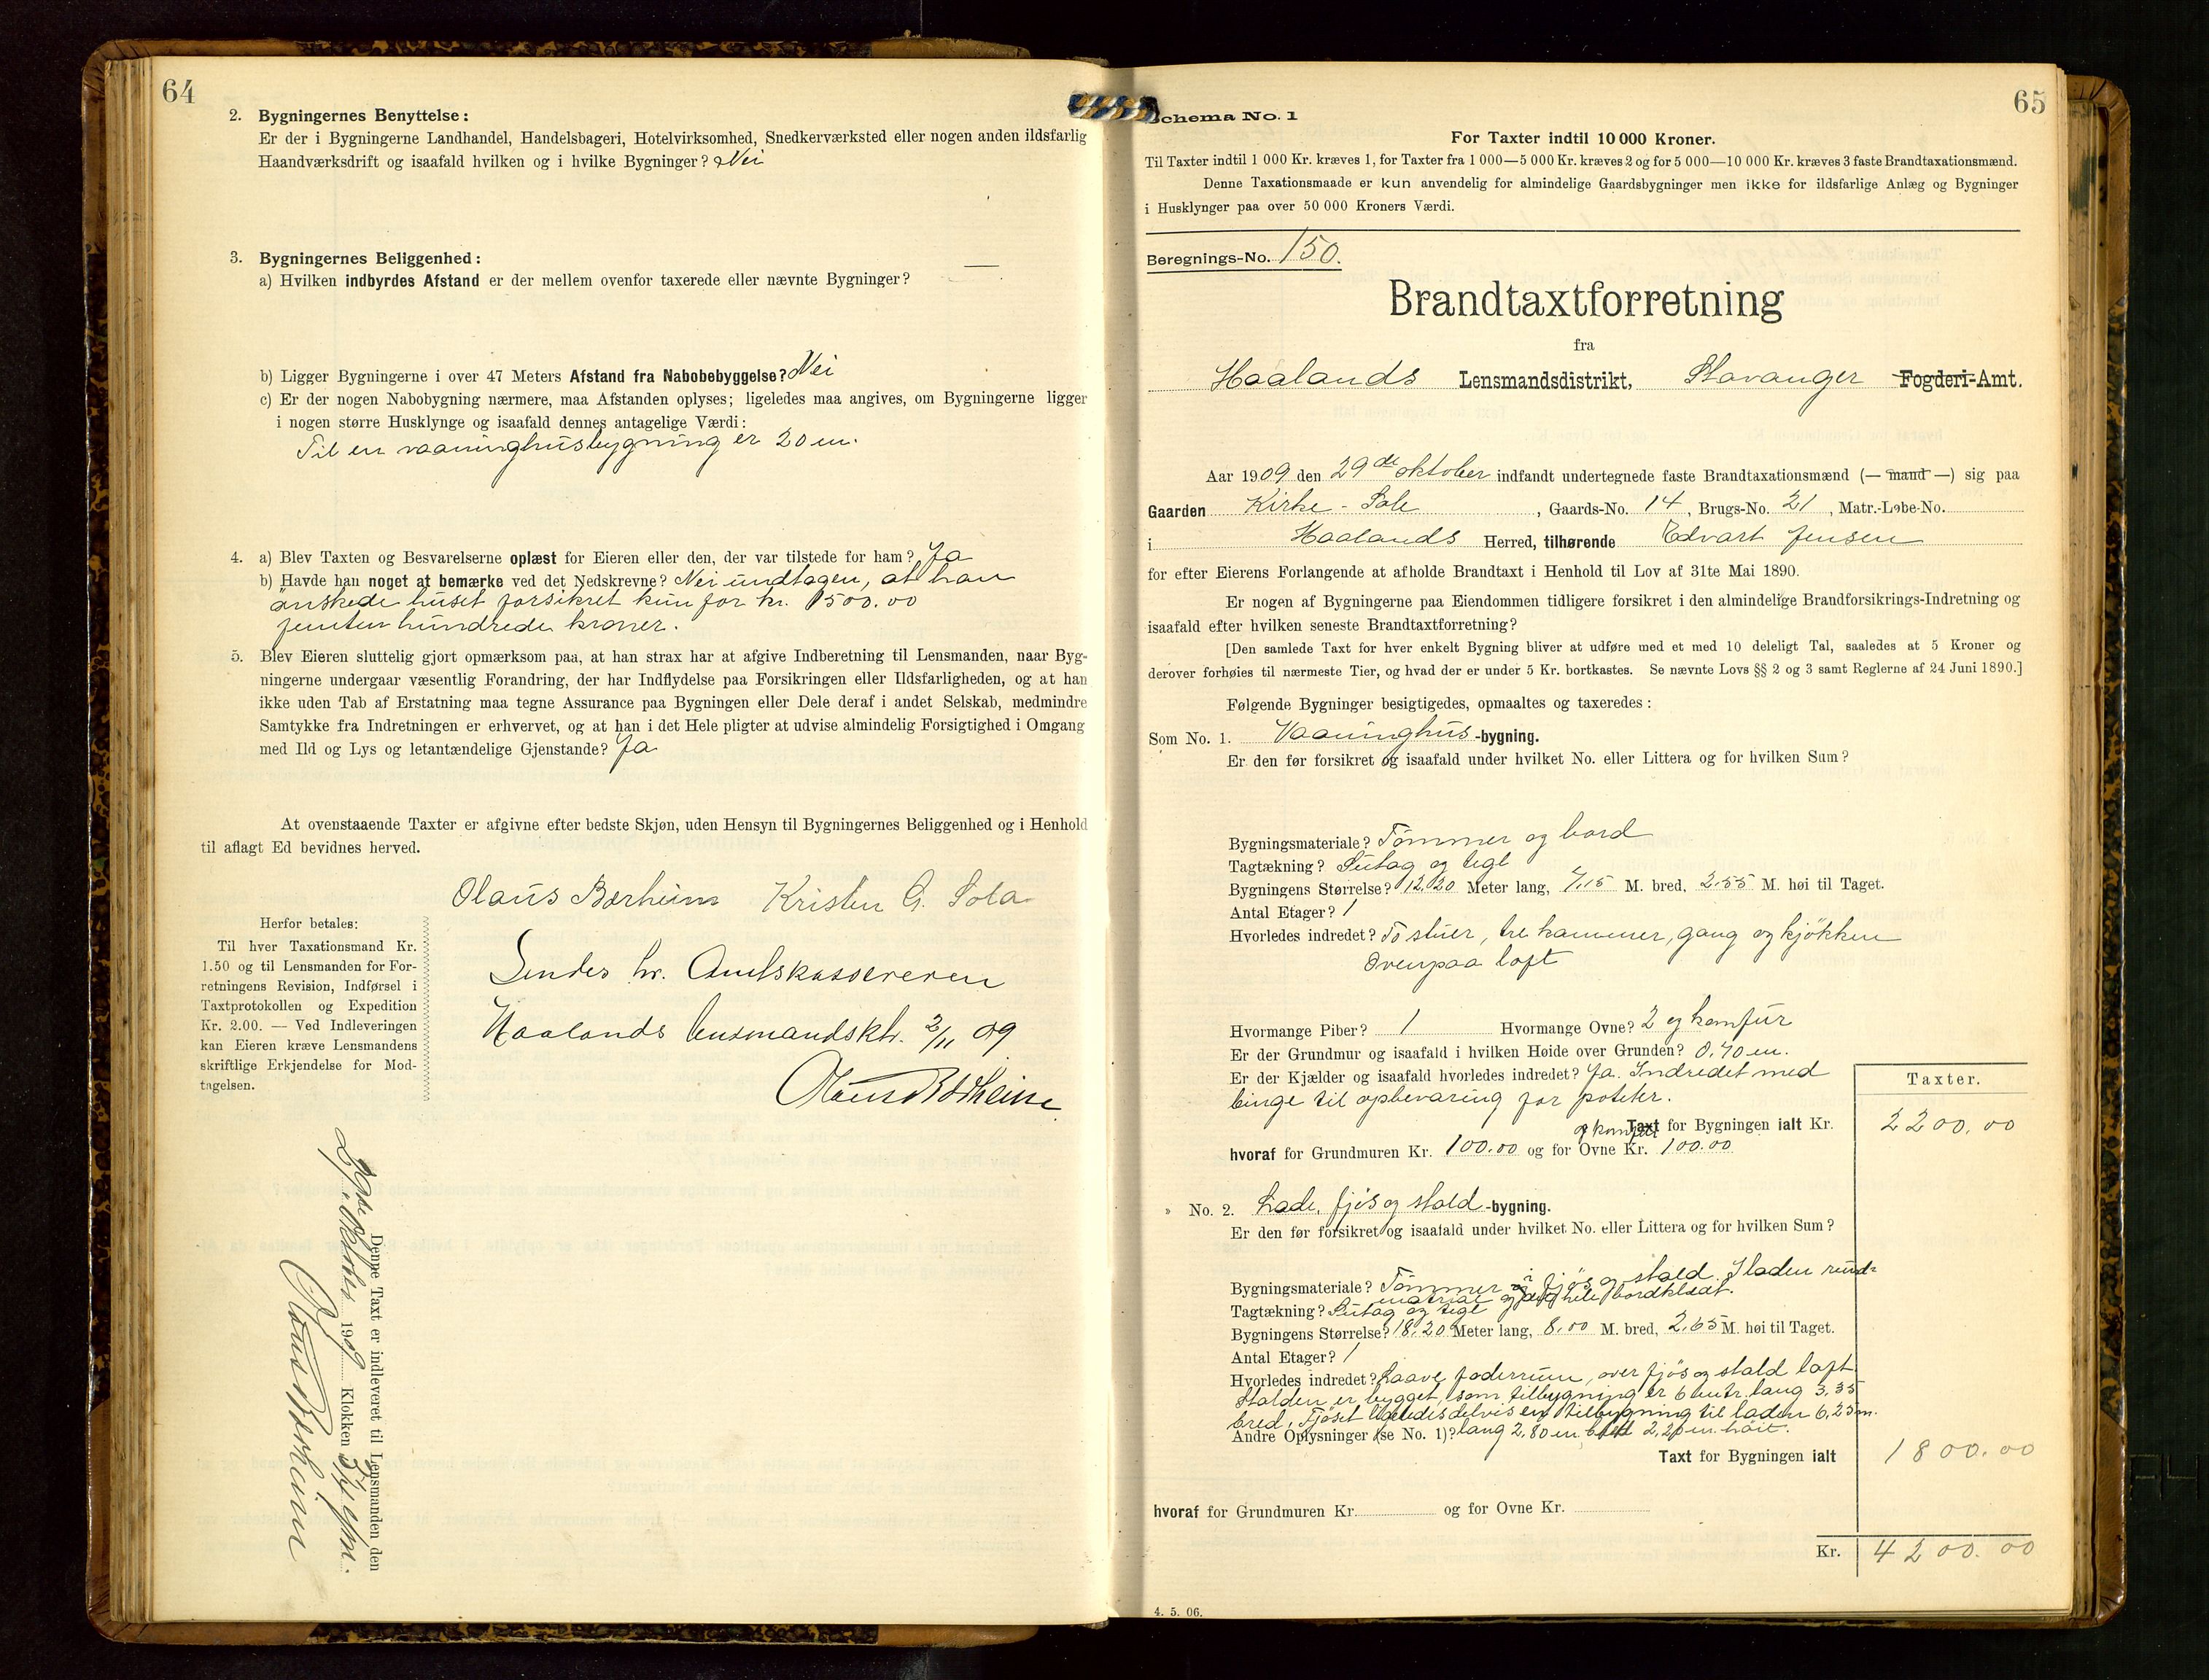 64
2. Bygningernes Benyttelse:
Er der i Bygningerne Landhandel, Handelsbageri, Hotelvirksomhed, Snedkerværksted eller nogen anden ildsfarlig
Haandværksdrift og isaafald hvilken og i hvilke Bygninger? Nei
3. Bygningernes Beliggenhed:
a) Hvilken indbyrdes Afstand er der mellem ovenfor taxerede eller nævnte Bygninger? —
b) Ligger Bygningerne i over 47 Meters Afstand fra Nabobebyggelse? Nei
c) Er der nogen Nabobygning nærmere, maa Afstanden oplyses; ligeledes maa angives, om Bygningerne ligger
i nogen større Husklynge og isaafald dennes antagelige Værdi:
Til en vaaninghusbygning er 20 m.
4. a) Blev Taxten og Besvarelserne oplæst for Eieren eller den, der var tilstede for ham? Ja
b) Havde han noget at bemærke ved det Nedskrevne? Nei undtagen, at han
önskede huset forsikret kun for kr. 1500.00
femten hundrede kroner.
5. Blev Eieren sluttelig gjort opmærksom paa, at han strax har at afgive Indberetning til Lensmanden, naar Byg-
ningerne undergaar væsentlig Forandring, der har Indflydelse paa Forsikringen eller Ildsfarligheden, og at han
ikke uden Tab af Erstatning maa tegne Assurance paa Bygningen eller Dele deraf i andet Selskab, medmindre
Samtykke fra Indretningen er erhvervet, og at han i det Hele pligter at udvise almindelig Forsigtighed i Omgang
med Ild og Lys og letantændelige Gjenstande? Ja
At ovenstaaende Taxter er afgivne efter bedste Skjøn, uden Hensyn til Bygningernes Beliggenhed og i Henhold
til aflagt Ed bevidnes herved.
Olaus Bærheim Kristen G. Sola
Herfor betales:
Til hver Taxationsmand Kr.
1.50 og til Lensmanden for For-
retningens Revision, Indførsel i
Taxtprotokollen og Expedition
Kr. 2.00. — Ved Indleveringen
kan Eieren kræve Lensmandens
skriftlige Erkjendelse for Mod-
tagelsen.
Sendes hr. Amtskassereren
Haalands lensmandsktr. 2/11 09
Olaus Bærheim
Denne Taxt er indleveret til Lensmanden den
29de Oktober 1909 Klokken
Olaus Bærheim
65
Schema No. 1
For Taxter indtil 10 000 Kroner.
Til Taxter indtil 1 000 Kr. kræves 1, for Taxter fra 1 000—5 000 Kr. kræves 2 og for 5 000—10 000 Kr. kræves 3 faste Brandtaxationsmænd.
Denne Taxationsmaade er kun anvendelig for almindelige Gaardsbygninger men ikke for ildsfarlige Anlæg og Bygninger
i Husklynger paa over 50 000 Kroners Værdi.
Beregnings-No. 150.
Brandtaxtforretning
fra
Haalands Lensmandsdistrikt, Stavanger Fogderi-Amt.
Aar 1909 den 29de oktober indfandt undertegnede faste Brandtaxationsmænd (— mand —) sig paa
Gaarden Kirke-Sole, Gaards-No. 14, Brugs-No. 21, Matr.-Løbe-No.
i Haalands Herred, tilhørende Edvart Jensen
for efter Eierens Forlangende at afholde Brandtaxt i Henhold til Lov af 31te Mai 1890.
Er nogen af Bygningerne paa Eiendommen tidligere forsikret i den almindelige Brandforsikrings-Indretning og
isaafald efter hvilken seneste Brandtaxtforretning?
[Den samlede Taxt for hver enkelt Bygning bliver at udføre med et med 10 deleligt Tal, saaledes at 5 Kroner og
derover forhøies til nærmeste Tier, og hvad der er under 5 Kr. bortkastes. Se nævnte Lovs §§ 2 og 3 samt Reglerne af 24 Juni 1890.]
Følgende Bygninger besigtigedes, opmaaltes og taxeredes:
Som No. 1. Vaaninghus-bygning.
Er den før forsikret og isaafald under hvilket No. eller Littera og for hvilken Sum?
Bygningsmateriale? Tömmer og bord
Tagtækning? Sutag og tegl
Bygningens Størrelse? 12,20 Meter lang, 7,15 M. bred, 2,55 M. høi til Taget.
Antal Etager? 1
Hvorledes indredet? To stuer, tre kammer, gang og kjökken
Ovenpaa loft
Hvormange Piber? 1 Hvormange Ovne? 2 og komfur
Er der Grundmur og isaafald i hvilken Høide over Grunden? 0,70 m.
Er der Kjælder og isaafald hvorledes indredet? Ja. Indredet med
binge til opbevaring for poteter.
Taxter.
Taxt for Bygningen ialt Kr. 2200.00
og komfur
hvoraf for Grundmuren Kr. 100.00 og for Ovne Kr. 100.00
» No. 2. Lade, fjös og stald-bygning.
Er den før forsikret og isaafald under hvilket No. eller Littera og for hvilken Sum?
Bygningsmateriale? Tömmer i fjös og stald. I laden rund-
hele bordklædt.
Tagtækning? Sutag og tegl
Bygningens Størrelse? 18,20 Meter lang, 8,00 M. bred, 2,65 M. høi til Taget.
Antal Etager? 1
Hvorledes indredet? Laave foderrum, over fjös og stald loft
Stalden er bygget som tilbygning er 6 mtr. lang 3,35
bred. Fjöset ligeledes delvis en tilbygning til laden 6,25 m.
Andre Oplysninger (se No. 1)? lang 2,80 m. bred 2,20 m. höit.
Taxt for Bygningen ialt 1800.00
hvoraf for Grundmuren Kr. og for Ovne Kr.
Kr. 4200.00
4. 5. 06.